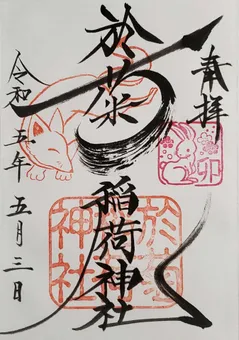 奉拝
卯
於菊
稲荷神社
於菊
神社
令和五年五月三日